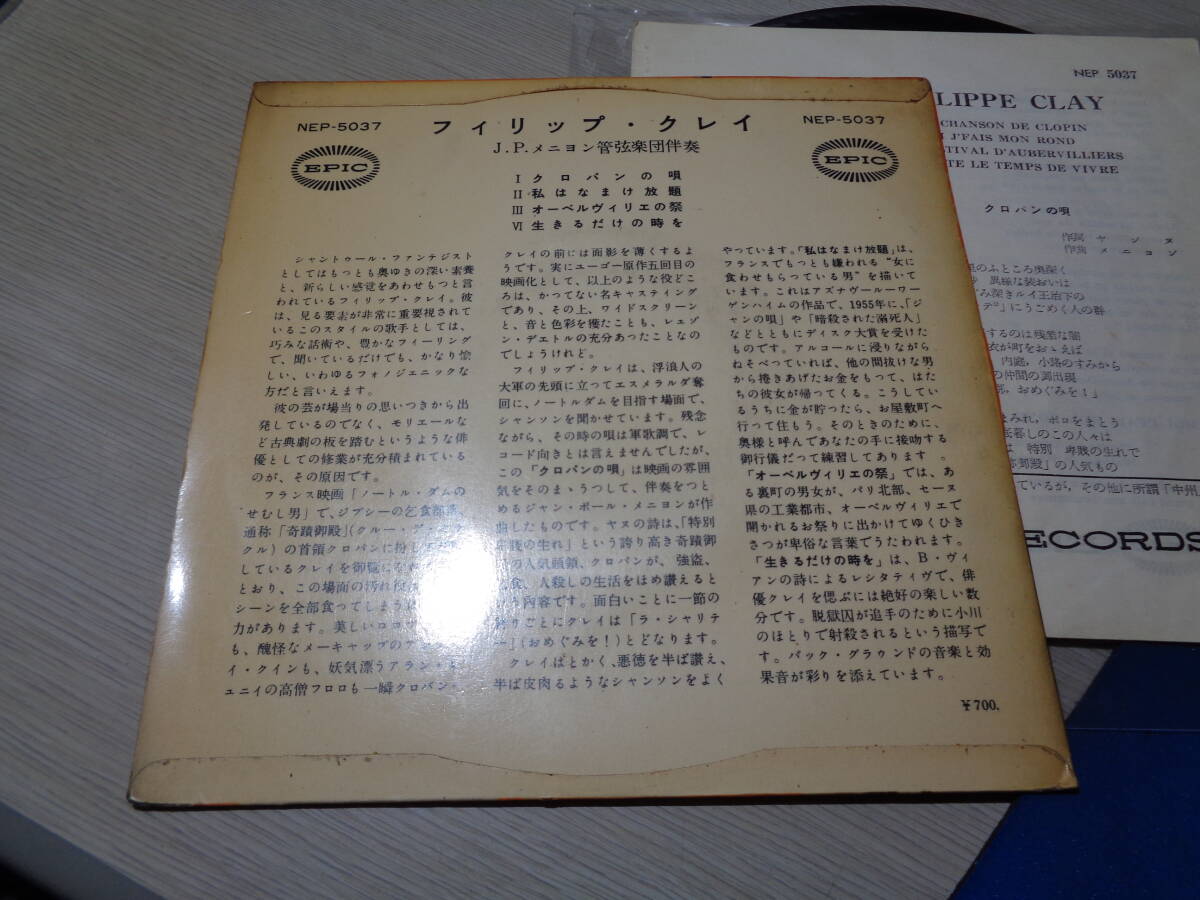 NEP-5037
フィリップ・クレイ
NEP-5037
J.P.メニヨン管弦楽団伴奏
EPIC
EPIC
I クロパンの唄
II 私はなまけ放題
III オーベルヴィリエの祭
VI 生きるだけの時を
シャントゥール・ファンテジスト
としてはもっとも奥ゆきの深い素養
と、新らしい感覚をあわせもつと言
われているフィリップ・クレイ。彼
は、見る要素が非常に重要視されて
いるこのスタイルの歌手としては、
巧みな話術や、豊かなフィーリング
で、聞いているだけでも、かなり愉
しい、いわゆるフォノジェニックな
方だと言えます。
彼の芸が場当りの思いつきから出
発しているのでなく、モリエールな
ど古典劇の板を踏むというような俳
優としての修業が充分積まれている
のが、その原因です。
フランス映画「ノートル・ダムの
せむし男」で、ジプシーの乞食部落、
通称「奇蹟御殿」(クルー・デ・
クル)の首領クロパンに扮し
しているクレイを御覧に
とおり、この場面の汚れ
シーンを全部食ってしまう
力があります。美しいロロ
も、醜怪なメーキャップのア
イ・クインも、妖気漂うアラン・
ュニイの高僧フロロも一瞬クロパン・
クレイの前には面影を薄くするよ
うです。実にユーゴー原作五回目の
映画化として、以上のような役どこ
ろは、かつてない名キャスティング
であり、その上、ワイドスクリーン
と、音と色彩を獲たことも、レェゾ
ン・デエトルの充分あったことなの
でしょうけれど。
フィリップ・クレイは、浮浪人の
大軍の先頭に立ってエスメラルダ奪
回に、ノートルダムを目指す場面で、
シャンソンを聞かせています。残念
ながら、その時の唄は軍歌調で、レ
コード向きとは言えませんでしたが、
この「クロパンの唄」は映画の雰囲
気をそのまゝうつして、伴奏をつと
めるジャン・ポール・メニヨンが作
曲したものです。ヤヌの詩は、「特別
の生れ」という誇り高き奇蹟御
の人気頭領、クロパンが、強盗、
食、人殺しの生活をほめ讃えると
う内容です。面白いことに一節の
りごとにクレイは「ラ・シャリテ
ー」(おめぐみを!)とどなります。
クレイはとかく、悪徳を半ば讃え、
半ば皮肉るようなシャンソンをよく
やっています。「私はなまけ放題」は、
フランスでもっとも嫌われる“女に
食わせもらっている男”を描いて
います。これはアズナヴールーワー
ゲンハイムの作品で、1955年に、「ジ
ャンの唄」や「暗殺された溺死人」
などとともにディスク大賞を受けた
ものです。アルコールに浸りながら
ねそべっていれば、他の間抜けな男
から捲きあげたお金をもって、はた
ちの彼女が帰ってくる。こうしてい
るうちに金が貯ったら、お屋敷町へ
行って住もう。そのときのために、
奥様と呼んであなたの手に接吻する
御行儀だって練習してあります。
「オーベルヴィリエの祭」では、あ
る裏町の男女が、パリ北部、セーヌ
県の工業都市、オーベルヴィリエで
開かれるお祭りに出かけてゆくひき
さつが卑俗な言葉でうたわれます。
「生きるだけの時を」は、B・ヴィ
アンの詩によるレシタティヴで、俳
優クレイを偲ぶには絶好の楽しい数
分です。脱獄囚が追手のために小川
のほとりで射殺されるという描写で
す。バック・グラウンドの音楽と効
果音が彩りを添えています。
¥700.
NEP 5037
LIPPE CLAY
CHANSON DE CLOPIN
J'FAIS MON ROND
TIVAL D'AUBERVILLIERS
TE LE TEMPS DE VIVRE
クロパンの唄
作詞 ヤンヌ
作曲 メニヨン
のふところ奥深く
異様な装おいは
み深きルイ王治下の
デ」にうごめく人の群
するのは残酷な闇
衣が町をおゝえば
内庭、小路のすみから
の仲間の御出現
おめぐみを!」
まみれ、ボロをまとう
底暮しのこの人々は
は 特別 卑賎の生れで
御殿」の人気もの
ているが、その他に所謂「中州」
ECORDS